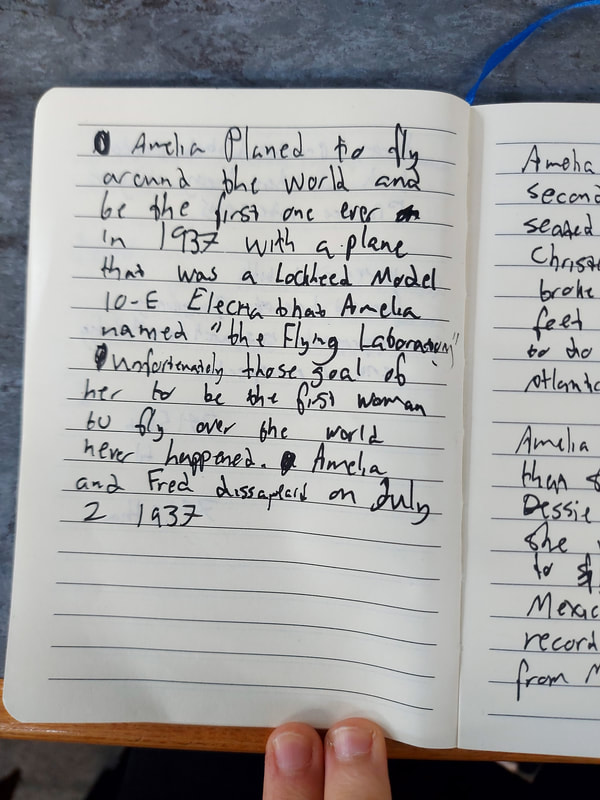 Amelia Planed to fly
around the world and
be the first one ever
in 1937 with a plane
that was a Lockheed Model
10-E Electra that Amelia
named "the Flying Laboratory"
Unfortenately those goal of
her to be the first woman
to fly over the world
never happened. Amelia
and Fred dissapeard on July
2 1937
Amelia
second
seated
broke
feet
to do
Atlantic
Amelia
than
Dessie
she
to
Mexic
record
from M